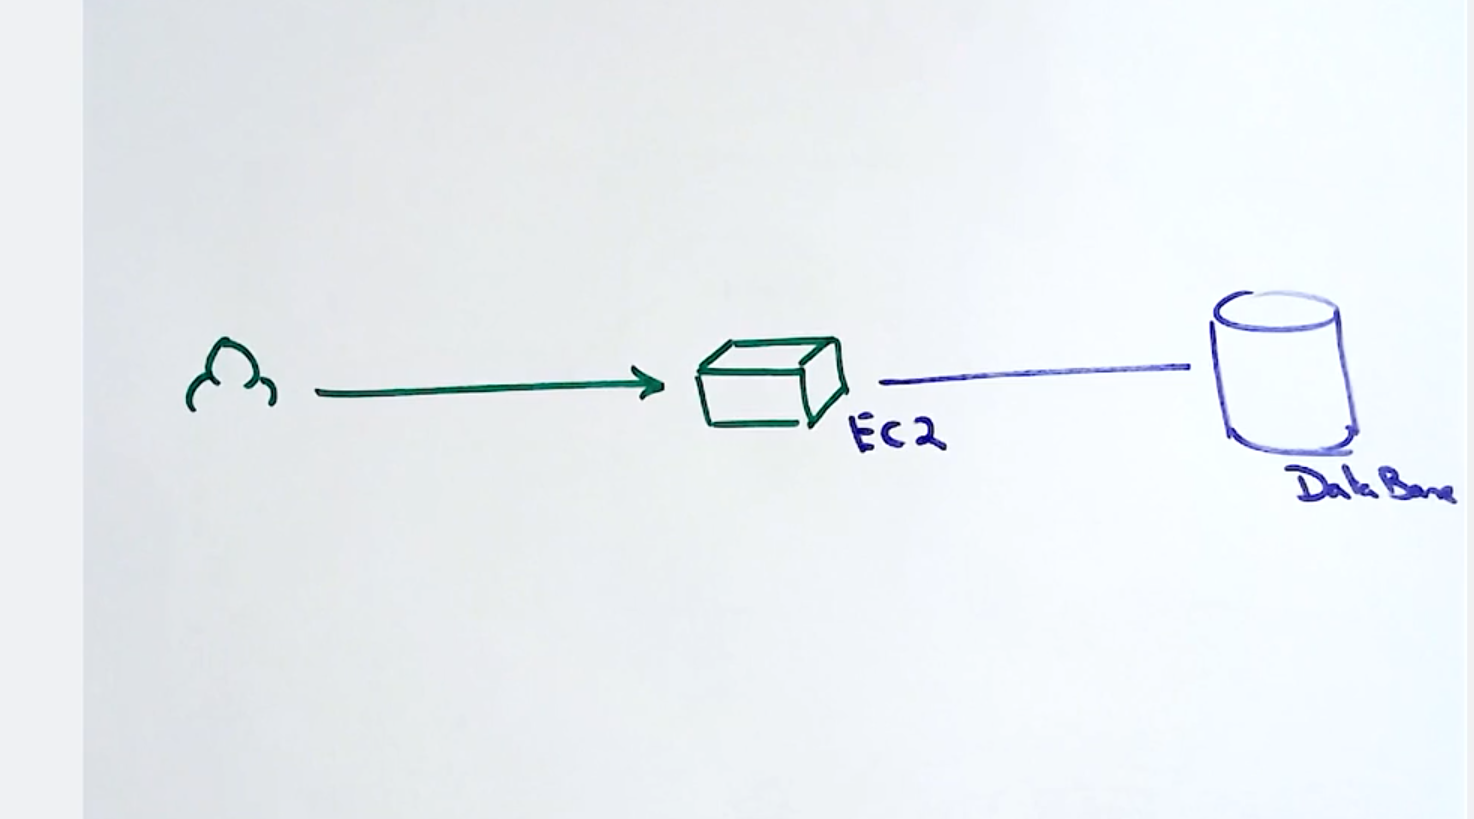 EC2
DataBase